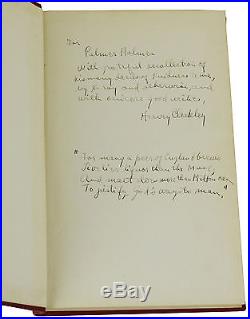 For
Palmer Holmes
With grateful recollection of
many kindness
by x-ray and otherwise, and
with sincere good wishes,
Hervey Cleckley
"For many a peer of England brews
Livelier liquor than the Muse,
And malt does more than Milton can
To justify God's ways to man."